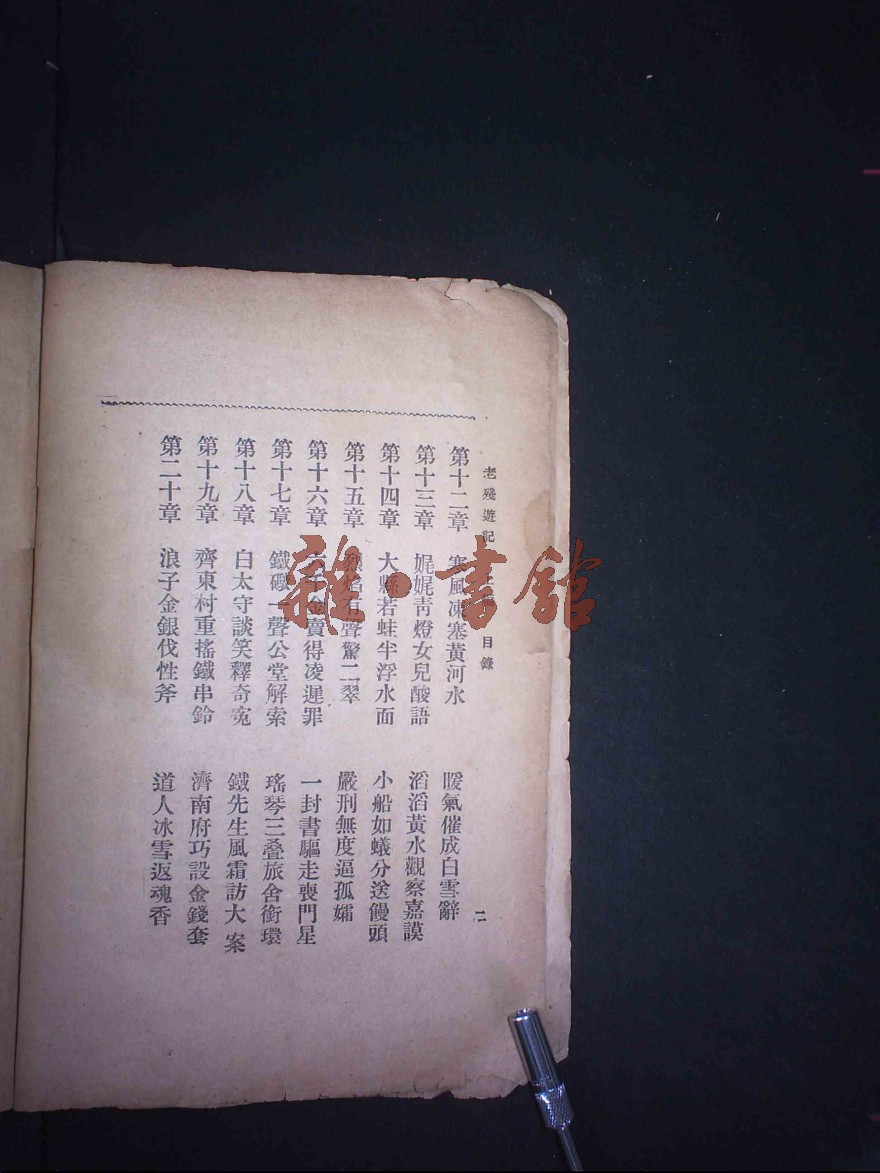 老殘遊記
目錄
二
第十二章 寒風凍塞黃河水 暖氣催成白雪辭
第十三章 娓娓靑燈女兒酸語 滔滔黃水觀察嘉謨
第十四章 大縣若蛙半浮水面 小船如蟻分送饅頭
第十五章 烈焰有聲驚二翠 嚴刑無度逼孤孀
第十六章 六千金賣得凌遲罪 一封書驅走喪門星
第十七章 鐵礮一聲公堂解索 瑤琴三叠旅舍銜環
第十八章 白太守談笑釋奇寃 鐵先生風霜訪大案
第十九章 齊東村重搖鐵串鈴 濟南府巧設金錢套
第二十章 浪子金銀伐性斧 道人冰雪返魂香
雜·書館